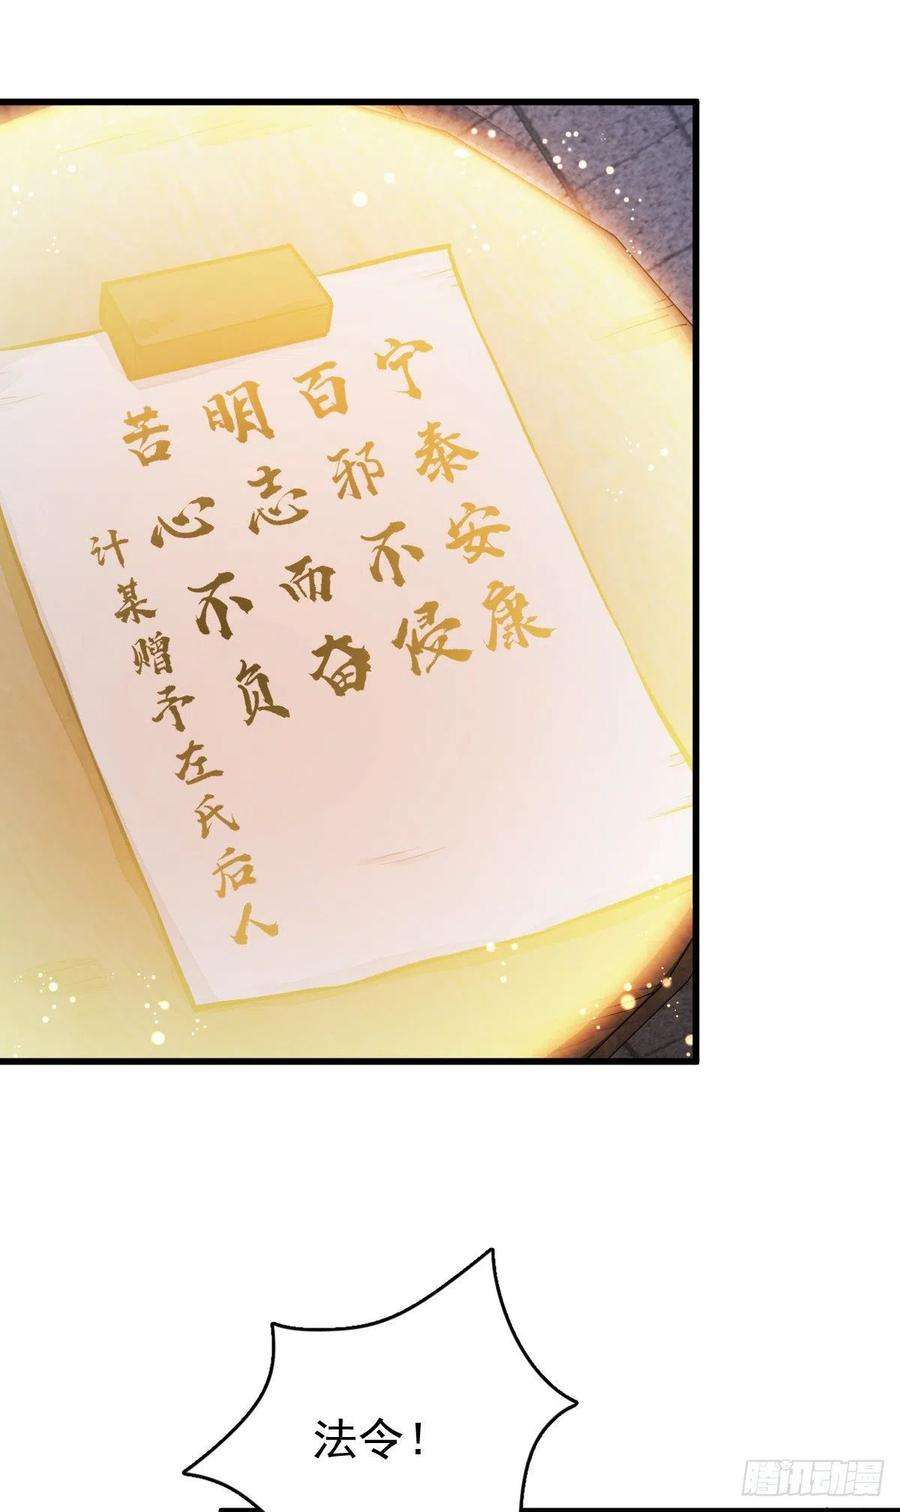 宁泰安康
百邪不侵
明志而奋
苦心不负
计某赠予左氏后人
法令！
腾讯动漫